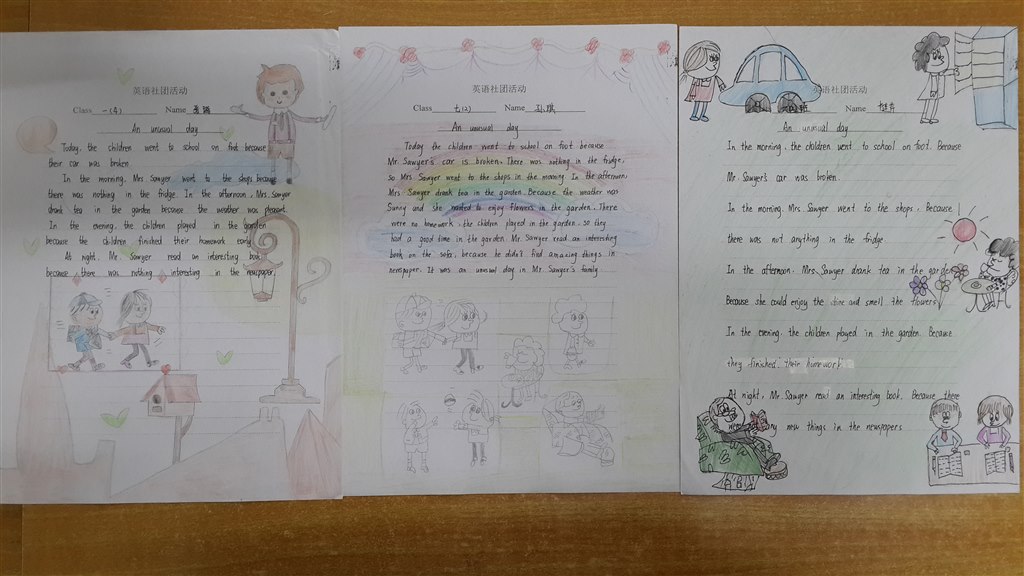 英语社团活动
Class 一(4) Name
An unusual day
Today, the children went to school on foot because
their car was broken
In the morning, Mrs Sawyer went to the shops because
there was nothing in the fridge. In the afternoon, Mrs. Sawyer
drank tea in the garden because the weather was pleasant.
In the evening, the children played in the garden
because the children finished their homework early
At night, Mr. Sawyer read an interesting book
because there was nothing interesting in the newspaper.
英语社团活动
Class 七(2) Name 孙琪
An unusual day
Today the children went to school on foot because
Mr. Sawyer's car is broken. There was nothing in the fridge,
so Mrs Sawyer went to the shops in the morning. In the afternoon,
Mrs Sawyer drank tea in the garden. Because the weather was
Sunny and she wanted to enjoy flowers in the garden. There
were no homework, the children played in the garden. so they
had a good time in the garden. Mr. Sawyer read an interesting
book on the sofa, because he didn't find amazing things in
newspaper. It was an unusual day in Mr. Sawyer's family
英语社团活动
Name
An unusual day
In the morning, the children went to school on foot. Because
Mr Sawyer's car was broken.
In the morning, Mrs Sawyer went to the shops. Because
there was not anything in the fridge
In the afternoon, Mrs Sawyer drank tea in the garden
Because she could enjoy the shine and smell the flowers
In the evening, the children played in the garden. Because
they finished their homework
At night, Mr. Sawyer read an interesting book. Because there
new things in the newspapers